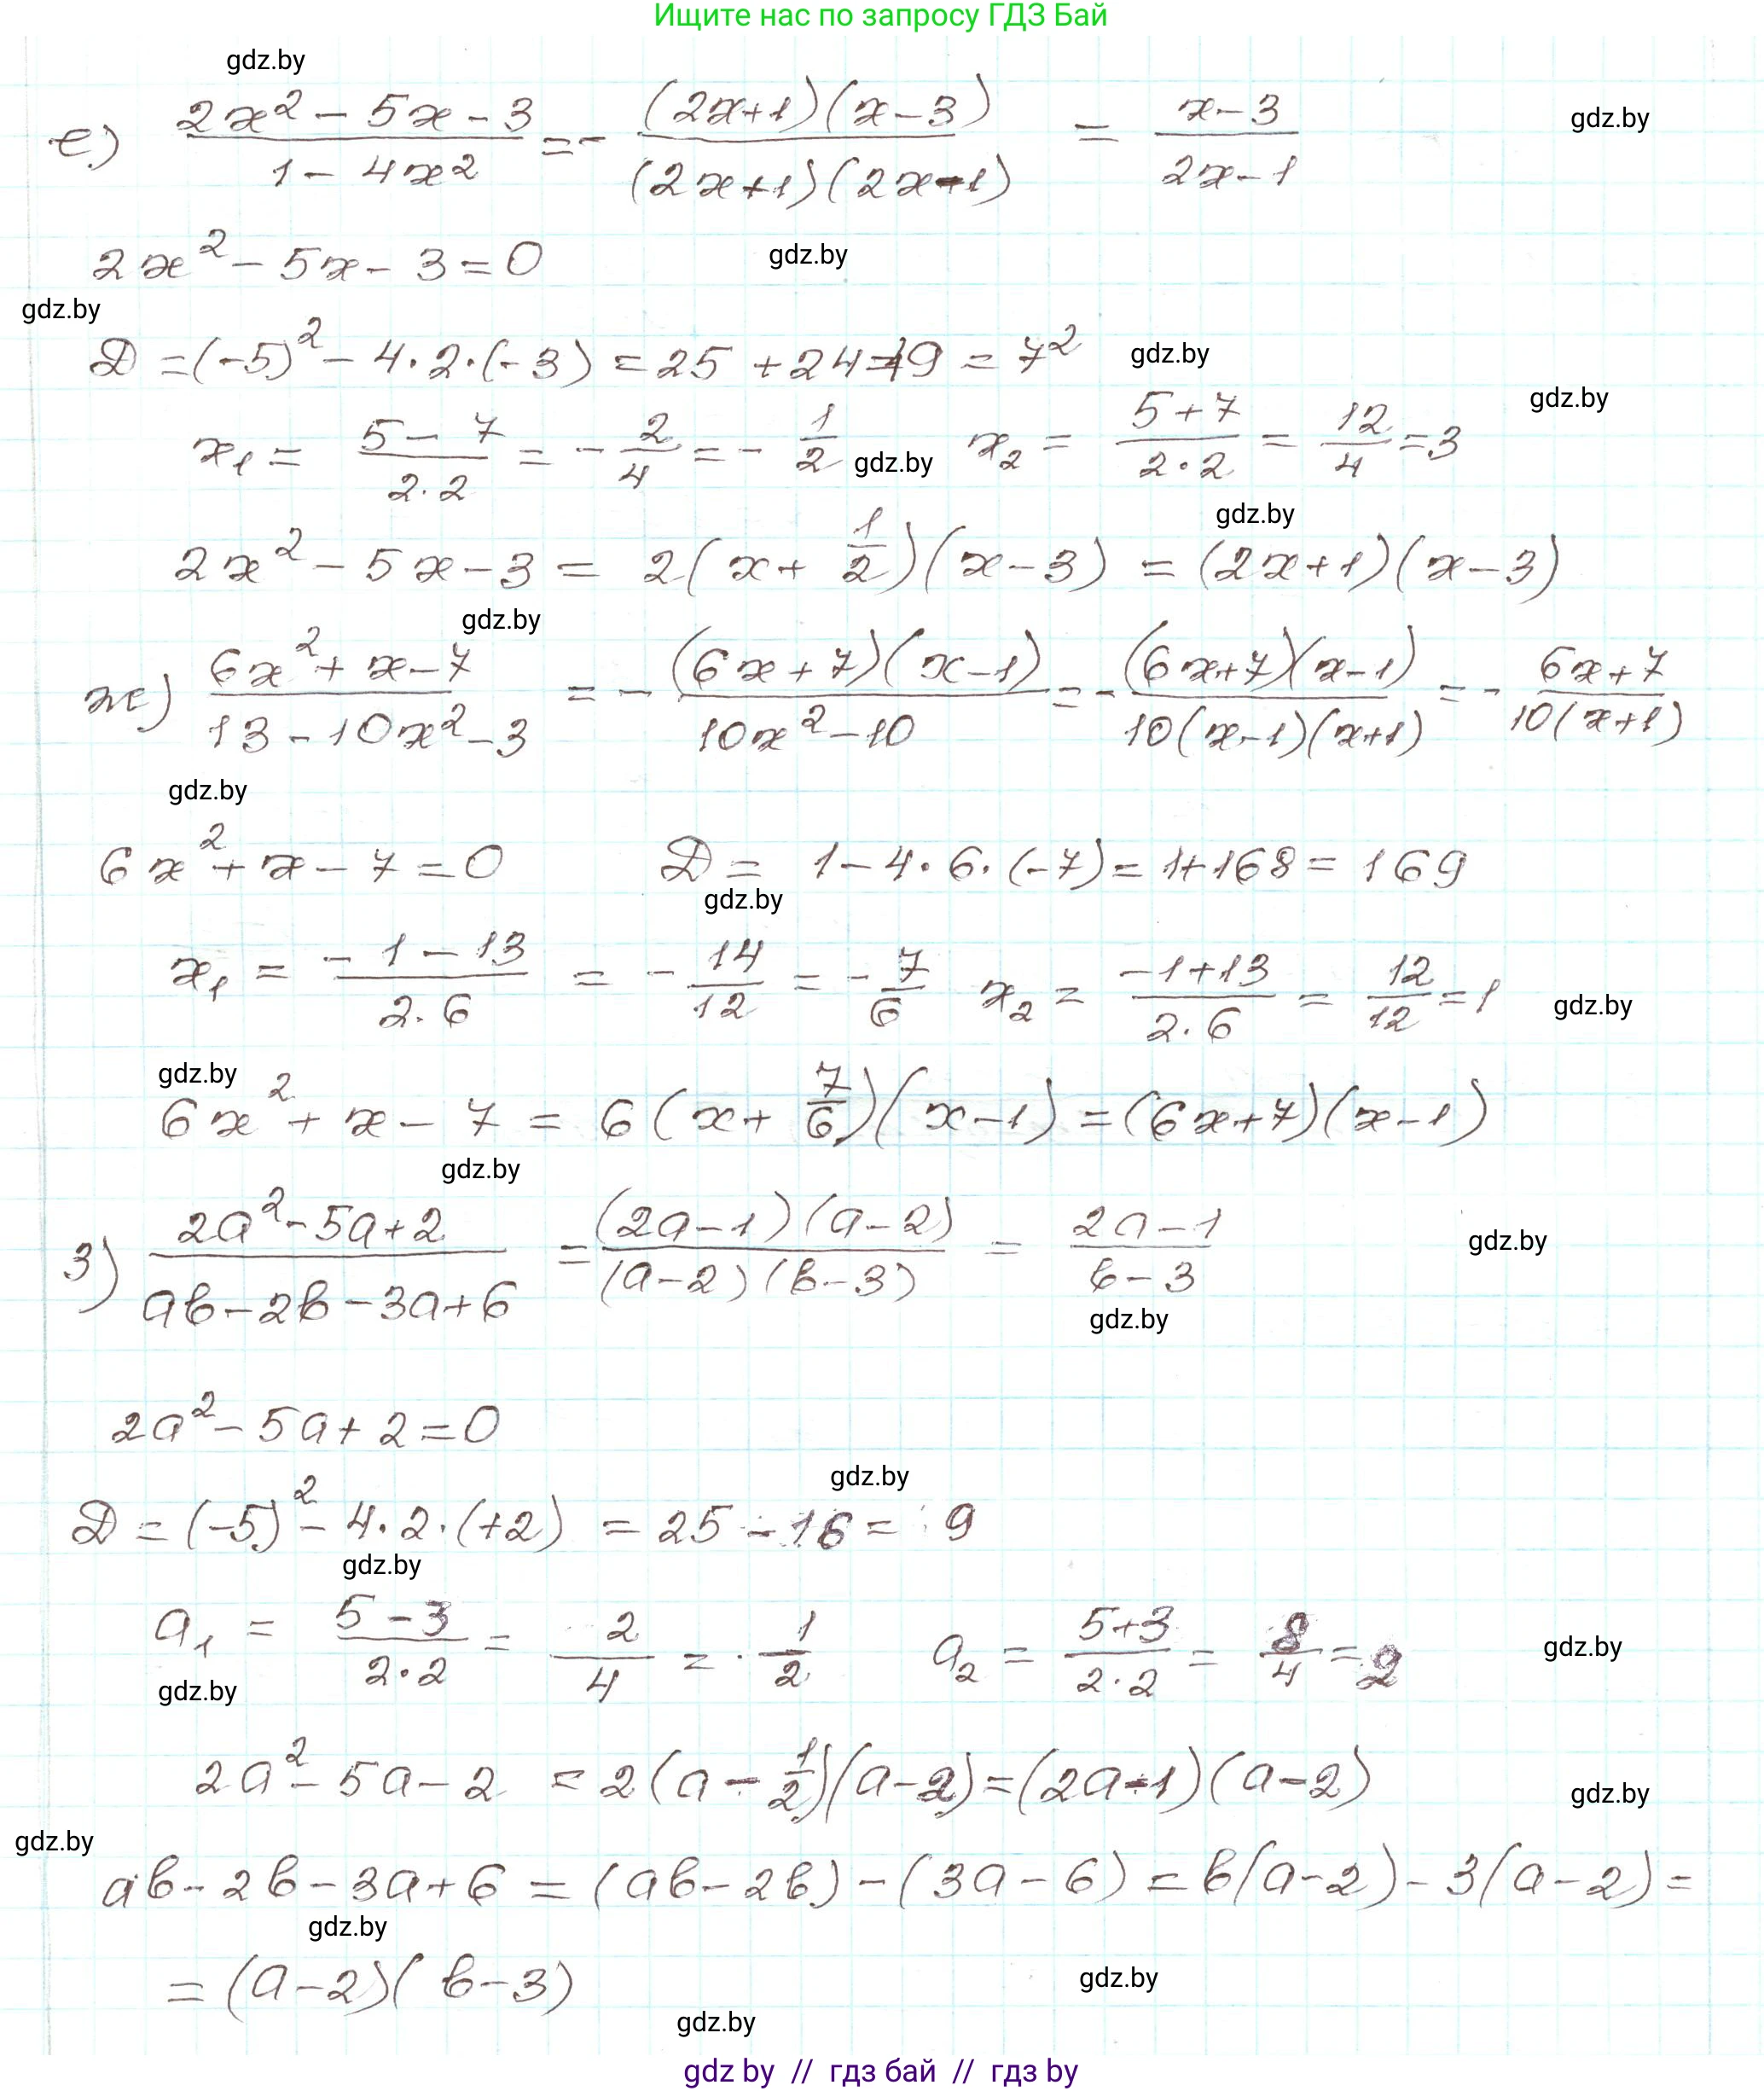 Ищите нас по запросу ГДЗ Бай
gdz.by
е) (2x² - 5x - 3)/(1 - 4x²) = - ((2x+1)(x-3))/((2x+1)(2x-1)) = (x-3)/(2x-1)
gdz.by
2x² - 5x - 3 = 0
gdz.by
gdz.by
D = (-5)² - 4·2·(-3) = 25 + 24 = 49 = 7²
gdz.by
gdz.by
x₁ = (5 - 7)/(2·2) = - 2/4 = - 1/2
gdz.by
x₂ = (5+7)/(2·2) = 12/4 = 3
gdz.by
2x² - 5x - 3 = 2(x + 1/2)(x - 3) = (2x+1)(x-3)
gdz.by
ж) (6x² + x - 7)/(13 - 10x² - 3) = - ((6x+7)(x-1))/(10x² - 10) = - ((6x+7)(x-1))/(10(x-1)(x+1)) = - (6x+7)/(10(x+1))
gdz.by
6x² + x - 7 = 0 D = 1 - 4·6·(-7) = 1+168 = 169
gdz.by
x₁ = (-1 - 13)/(2·6) = - 14/12 = - 7/6 x₂ = (-1+13)/(2·6) = 12/12 = 1
gdz.by
gdz.by
6x² + x - 7 = 6(x + 7/6)(x-1) = (6x+7)(x-1)
gdz.by
з) (2a² - 5a + 2)/(ab - 2b - 3a + 6) = ((2a-1)(a-2))/((a-2)(b-3)) = (2a-1)/(b-3)
gdz.by
gdz.by
2a² - 5a + 2 = 0
gdz.by
D = (-5)² - 4·2·(+2) = 25 - 16 = 9
gdz.by
a₁ = (5-3)/(2·2) = 2/4 = 1/2 a₂ = (5+3)/(2·2) = 8/4 = 2
gdz.by
gdz.by
2a² - 5a - 2 = 2(a - 1/2)(a-2) = (2a-1)(a-2)
gdz.by
gdz.by
ab - 2b - 3a + 6 = (ab - 2b) - (3a - 6) = b(a-2) - 3(a-2) =
gdz.by
= (a-2)(b-3)
gdz.by
gdz.by
gdz by // гдз бай // гдз by